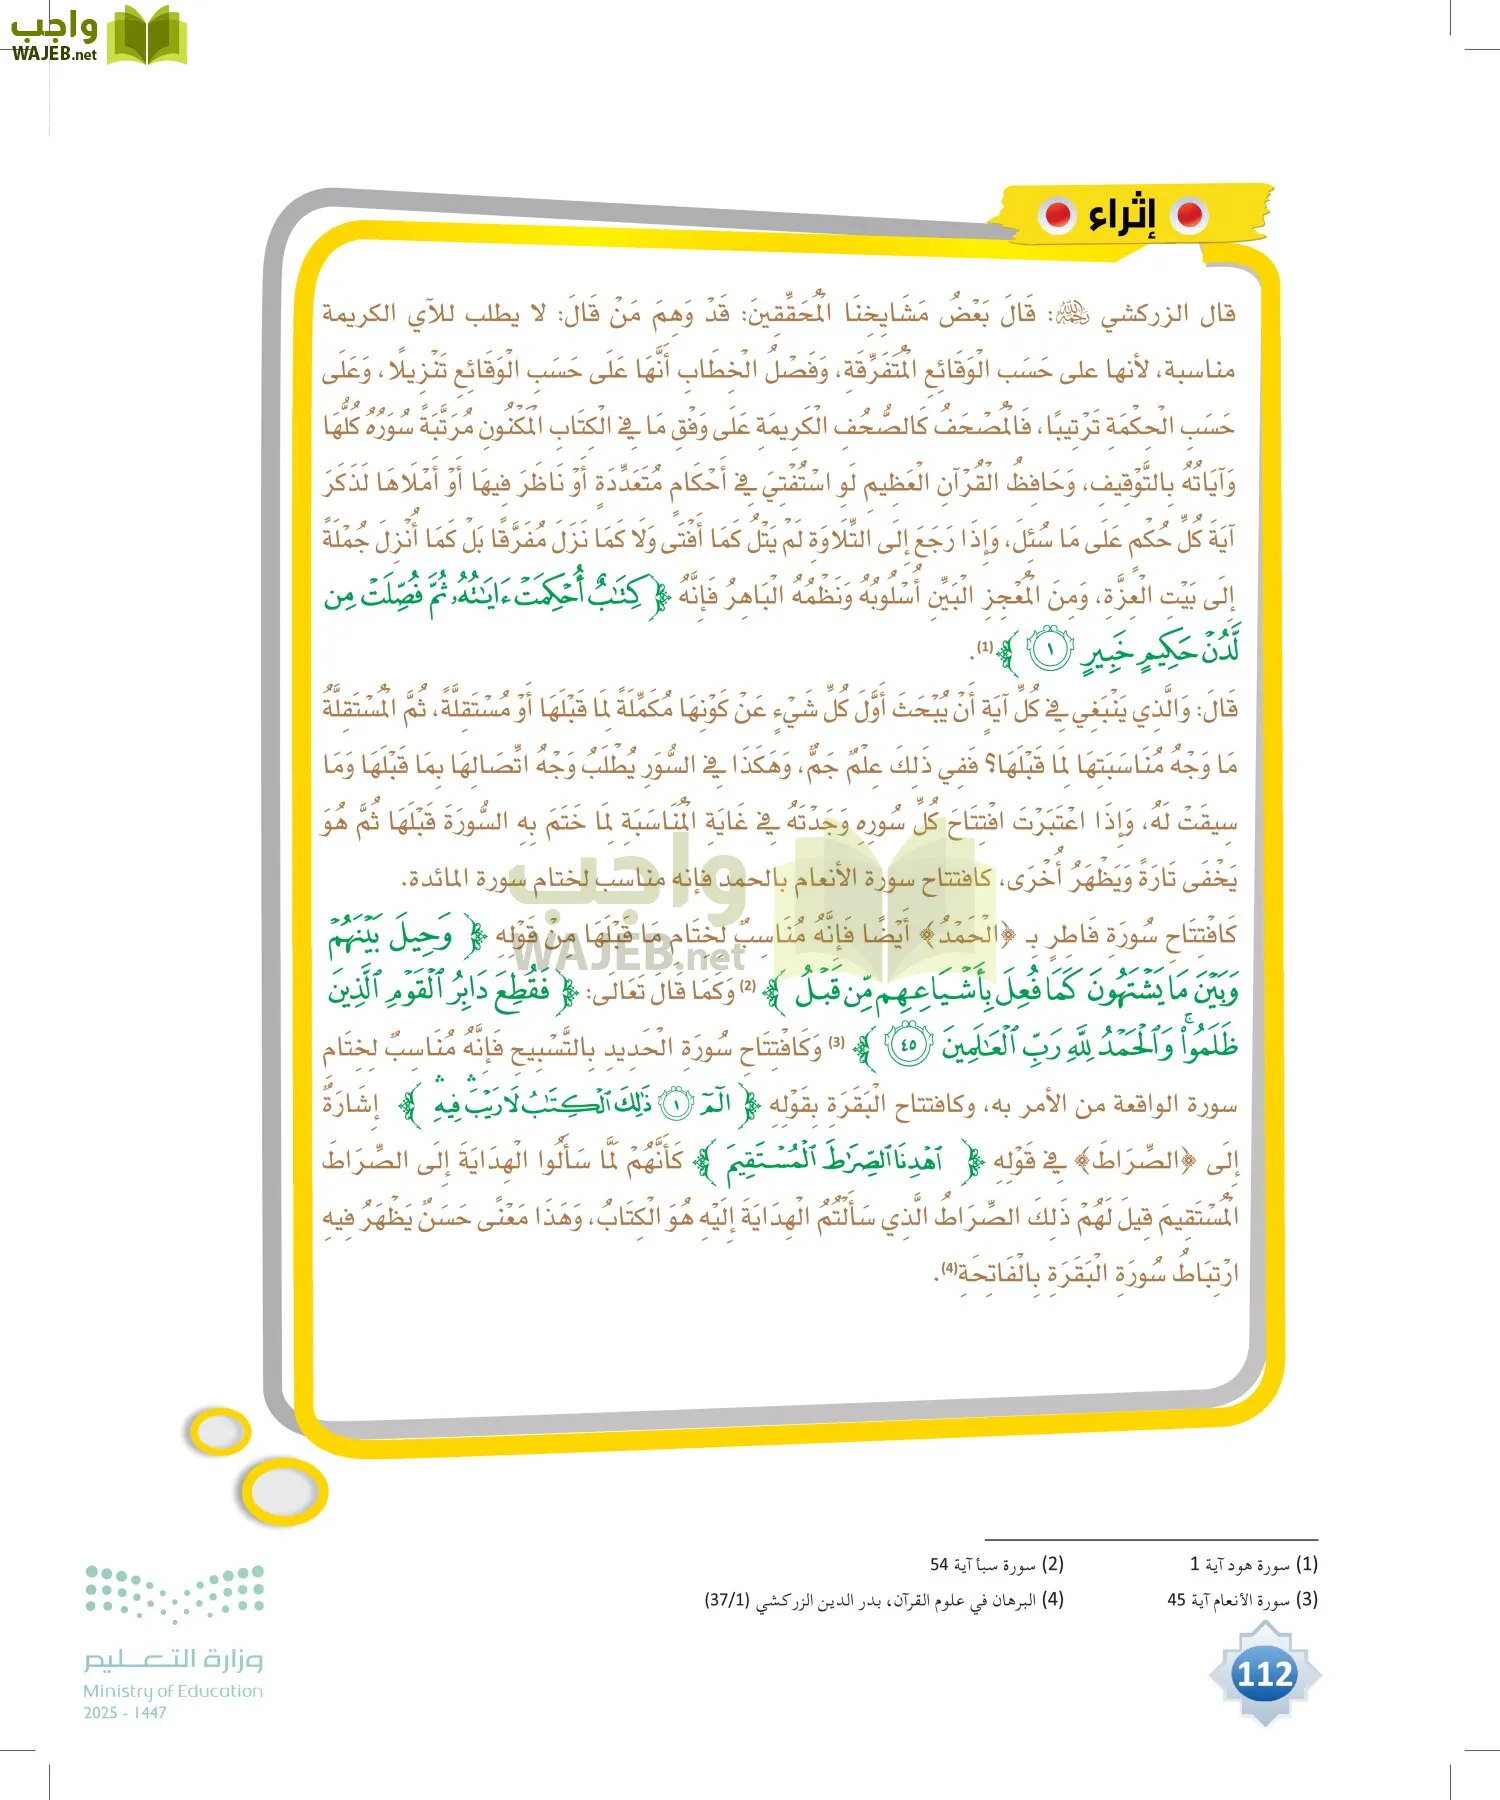 واجب
WAJEB.net
إثراء
قال الزركشي رحمه الله: قَالَ بَعْضُ مَشَايِخِنَا الْمُحَقِّقِينَ: قَدْ وَهِمَ مَنْ قَالَ: لا يطلب للآي الكريمة
مناسبة، لأنها على حَسَبِ الْوَقَائِعِ الْمُتَفَرِّقَةِ، وَفَصْلُ الْخِطَابِ أَنَّهَا عَلَى حَسَبِ الْوَقَائِعِ تَنْزِيلًا، وَعَلَى
حَسَبِ الْحِكْمَةِ تَرْتِيبًا، فَالْمُصْحَفُ كَالصُّحُفِ الْكَرِيمَةِ عَلَى وَفْقِ مَا فِي الْكِتَابِ الْمَكْنُونِ مُرَتَّبَةً سُوَرُهُ كُلُّهَا
وَآيَاتُهُ بِالتَّوْقِيفِ، وَحَافِظُ الْقُرْآنِ الْعَظِيمِ لَو اسْتُفْتِيَ فِي أَحْكَامٍ مُتَعَدِّدَةٍ أَوْ نَاظَرَ فِيهَا أَوْ أَمْلَاهَا لَذَكَرَ
آيَةَ كُلِّ حُكْمٍ عَلَى مَا سُئِلَ، وَإِذَا رَجَعَ إِلَى التِّلَاوَةِ لَمْ يَتْلُ كَمَا أَفْتَى وَلَا كَمَا نَزَلَ مُفَرَّقًا بَلْ كَمَا أُنْزِلَ جُمْلَةً
إِلَى بَيْتِ الْعِزَّةِ، وَمِنَ الْمُعْجِزِ الْبَيِّنِ أُسْلُوبُهُ وَنَظْمُهُ الْبَاهِرُ فَإِنَّهُ ﴿كِتَٰبٌ أُحْكِمَتْ ءَايَٰتُهُۥ ثُمَّ فُصِّلَتْ مِن
لَّدُنْ حَكِيمٍ خَبِيرٍ ١﴾(1).
قَالَ: وَالَّذِي يَنْبَغِي فِي كُلِّ آيَةٍ أَنْ يُبْحَثَ أَوَّلَ كُلِّ شَيْءٍ عَنْ كَوْنِهَا مُكَمِّلَةً لِمَا قَبْلَهَا أَوْ مُسْتَقِلَّةً، ثُمَّ الْمُسْتَقِلَّةُ
مَا وَجْهُ مُنَاسَبَتِهَا لِمَا قَبْلَهَا؟ فَفِي ذَلِكَ عِلْمٌ جَمٌّ، وَهَكَذَا فِي السُّوَرِ يُطْلَبُ وَجْهُ اتِّصَالِهَا بِمَا قَبْلَهَا وَمَا
سِيقَتْ لَهُ، وَإِذَا اعْتَبَرْتَ افْتِتَاحَ كُلِّ سُورِهِ وَجَدْتَهُ فِي غَايَةِ الْمُنَاسَبَةِ لِمَا خَتَمَ بِهِ السُّورَةَ قَبْلَهَا ثُمَّ هُوَ
يَخْفَى تَارَةً وَيَظْهَرُ أُخْرَى، كافتتاح سورة الأنعام بالحمد فإنه مناسب لختام سورة المائدة.
كَافْتِتَاحِ سُورَةِ فَاطِرِ بـ ﴿الْحَمْدُ﴾ أَيْضًا فَإِنَّهُ مُنَاسِبٌ لِخِتَامِ مَا قَبْلَهَا مِنْ قَوْلِهِ ﴿وَحِيلَ بَيْنَهُمْ
وَبَيْنَ مَا يَشْتَهُونَ كَمَا فُعِلَ بِأَشْيَاعِهِم مِّن قَبْلُ﴾(2) وَكَمَا قَالَ تَعَالَى: ﴿فَقُطِعَ دَابِرُ ٱلْقَوْمِ ٱلَّذِينَ
ظَلَمُوا۟ ۚ وَٱلْحَمْدُ لِلَّهِ رَبِّ ٱلْعَٰلَمِينَ ٤٥﴾(3) وَكَافْتِتَاحِ سُورَةِ الْحَدِيدِ بِالتَّسْبِيحِ فَإِنَّهُ مُنَاسِبٌ لِخِتَامِ
سورة الواقعة من الأمر به، وكافتتاح الْبَقَرَةِ بِقَوْلِهِ ﴿الٓمٓ ١ ذَٰلِكَ ٱلْكِتَٰبُ لَا رَيْبَ ۛ فِيهِ ۛ﴾ إِشَارَةٌ
إِلَى ﴿الصِّرَاطَ﴾ فِي قَوْلِهِ ﴿ٱهْدِنَا ٱلصِّرَٰطَ ٱلْمُسْتَقِيمَ﴾ كَأَنَّهُمْ لَمَّا سَأَلُوا الْهِدَايَةَ إِلَى الصِّرَاطَ
الْمُسْتَقِيمَ قِيلَ لَهُمْ ذَلِكَ الصِّرَاطُ الَّذِي سَأَلْتُمُ الْهِدَايَةَ إِلَيْهِ هُوَ الْكِتَابُ، وَهَذَا مَعْنًى حَسَنٌ يَظْهَرُ فِيهِ
ارْتِبَاطُ سُورَةِ الْبَقَرَةِ بِالْفَاتِحَةِ(4).
واجب
WAJEB.net
(1) سورة هود آية 1
(2) سورة سبأ آية 54
(3) سورة الأنعام آية 45
(4) البرهان في علوم القرآن، بدر الدين الزركشي (37/1)
112
وزارة التعليم
Ministry of Education
2025 - 1447